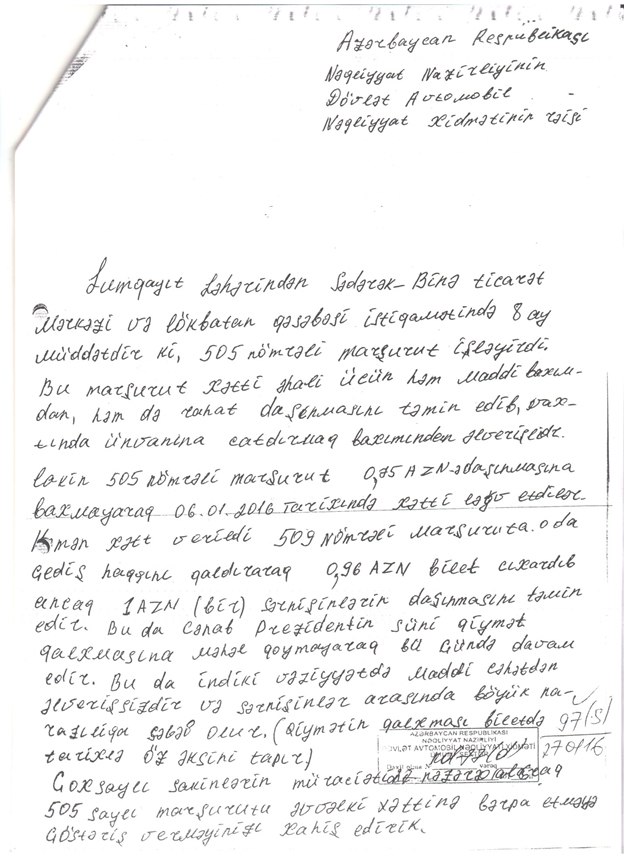 Azərbaycan Respublikası
Nəqliyyat Nazirliyinin
Dövlət Avtomobil -
Nəqliyyat xidmətinin rəisi
Sumqayıt şəhərindən Sədərək-Binə ticarət
Mərkəzi və lökbatan qəsəbəsi istiqamətində 8 ay
müddətdir ki, 505 nömrəli marşurut işləyirdi.
Bu marşurut xətti əhali üçün həm Maddi baxım-
dan, həm də rahat daşınmasını təmin edib, vax-
tında ünvanına catdırmaq baxımından əlverişlidir.
lakin 505 nömrəli marşurut 0,85 AZN-ə daşınmasına
baxmayaraq 06.01.2016 tarixində xətti ləğv etdilər.
Həmən xətt verildi 509 nömrəli Marşuruta. o da
Gediş haqqını qaldıraraq 0,96 AZN bilet cıxardıb
ancaq 1AZN (bir) sərnişinlərin daşınmasını təmin
edir. Bu da Cənab Prezidentin süni qiymət
qalxmasına məhəl qoymayaraq bu Gündə davam
edir. Bu da indiki vəziyyətdə Maddi cəhətdən
əlverişsizdir və sərnişinlər arasında böyük na-
razılıqa səbəb olur. (Qiymətin qalxması biletdə
tarixlə öz əksini tapır)
97/(S)
270116
AZƏRBAYCAN RESPUBLİKASI
NƏQLİYYAT NAZİRLİYİ
DÖVLƏT AVTOMOBİL NƏQLİYYATI XİDMƏTİ
Coxsaylı sakinlərin müraciətini nəzərə alaraq
505 saylı marşurutu əvvəlki xəttinə bərpa etməyə
Göstəriş verməyinizi xahiş edirik.